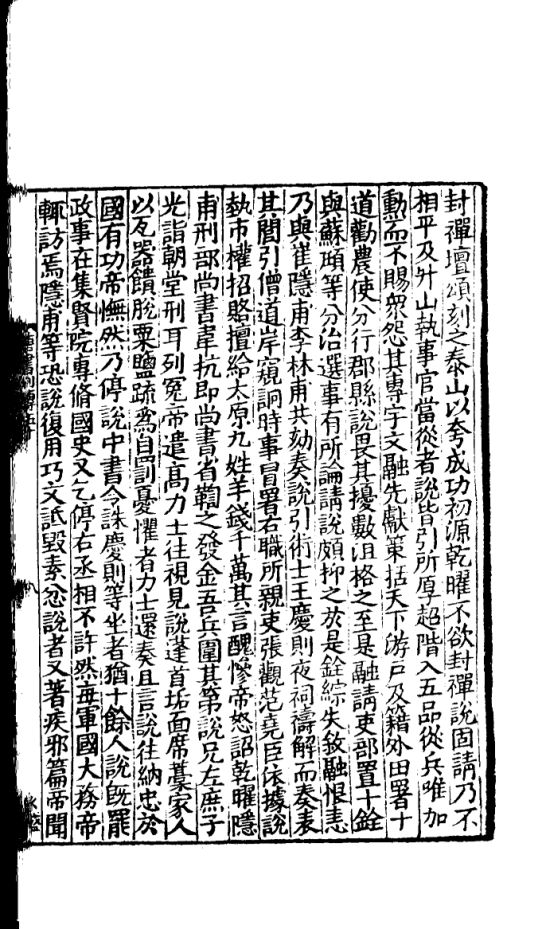 封禪壇頌刻之泰山以夸成功初源乾曜不欲封禪說固請乃不
相平及升山執事官當從者說皆引所厚超階入五品從兵唯加
勳而不賜衆怨其專宇文融先獻策括天下游戸及籍外田署十
道勸農使分行郡縣說畏其擾數沮格之至是融請吏部置十銓
與蘇頲等分治選事有所論請說頗抑之於是銓綜失敘融恨恚
乃與崔隱甫李林甫共劾奏說引術士王慶則夜祠禱解而奏表
其閭引僧道岸窺詗時事冒署右職所親吏張觀范堯臣依據說
埶市權招賂擅給太原九姓羊錢千萬其言醜慘帝怒詔乾曜隱
甫刑部尚書韋抗即尚書省鞫之發金吾兵圍其第說兄左庶子
光詣朝堂刑耳列冤帝遣髙力士往視見說蓬首垢面席藁家人
以瓦器饋脫粟鹽疏爲自罰憂懼者力士還奏且言說往納忠於
國有功帝憮然乃停說中書令誅慶則等坐者猶十餘人說旣罷
政事在集賢院專脩國史又乞停右丞相不許然每軍國大務帝
輒訪焉隱甫等恐說復用巧文詆毀素忿說者又著疾邪篇帝聞